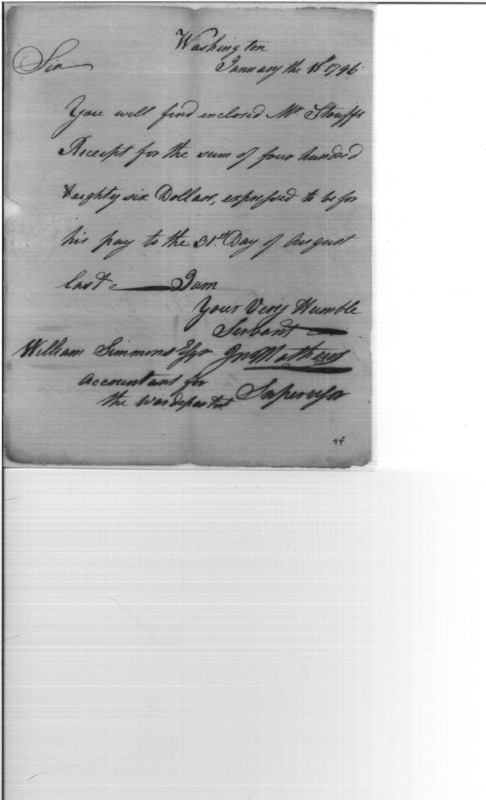 Washington
January the 1796
Sir
You will find inclosed Mr Stouffs
Receipt for the sum of four hundred
& eighty six Dollars, expressed to be for
his pay to the 31st Day of August
last I am
Your Very Humble
Servant
William Simmons Esqr Jno Mathews
Accountant for Supervisor
the War departmt